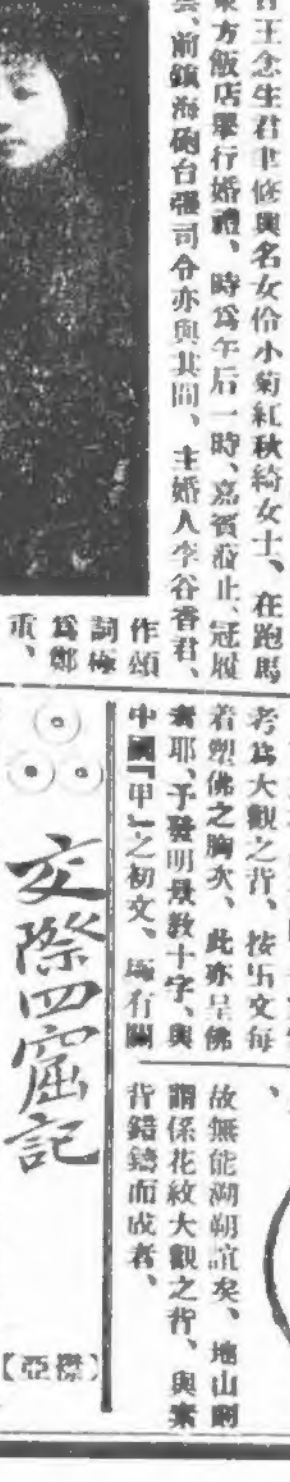 王念生君聿修與名女伶小菊紅秋綺女士、在跑馬
東方飯店舉行婚禮、時爲午后一時、嘉賓蒞止、冠履
前鎭海砲台張司令亦與其間、主婚人李谷香君、
作頌
詞極
爲鄭
重、
考爲大觀之背、按古文每
着塑佛之胸次、此亦呈佛
者耶、予發明景教十字、與
中國『甲』之初文、爲有關
故無能溯朔誼矣、地山
謂係花紋大觀之背、與素
背錯鑄而成者、
交際四窟記
【亞傑】